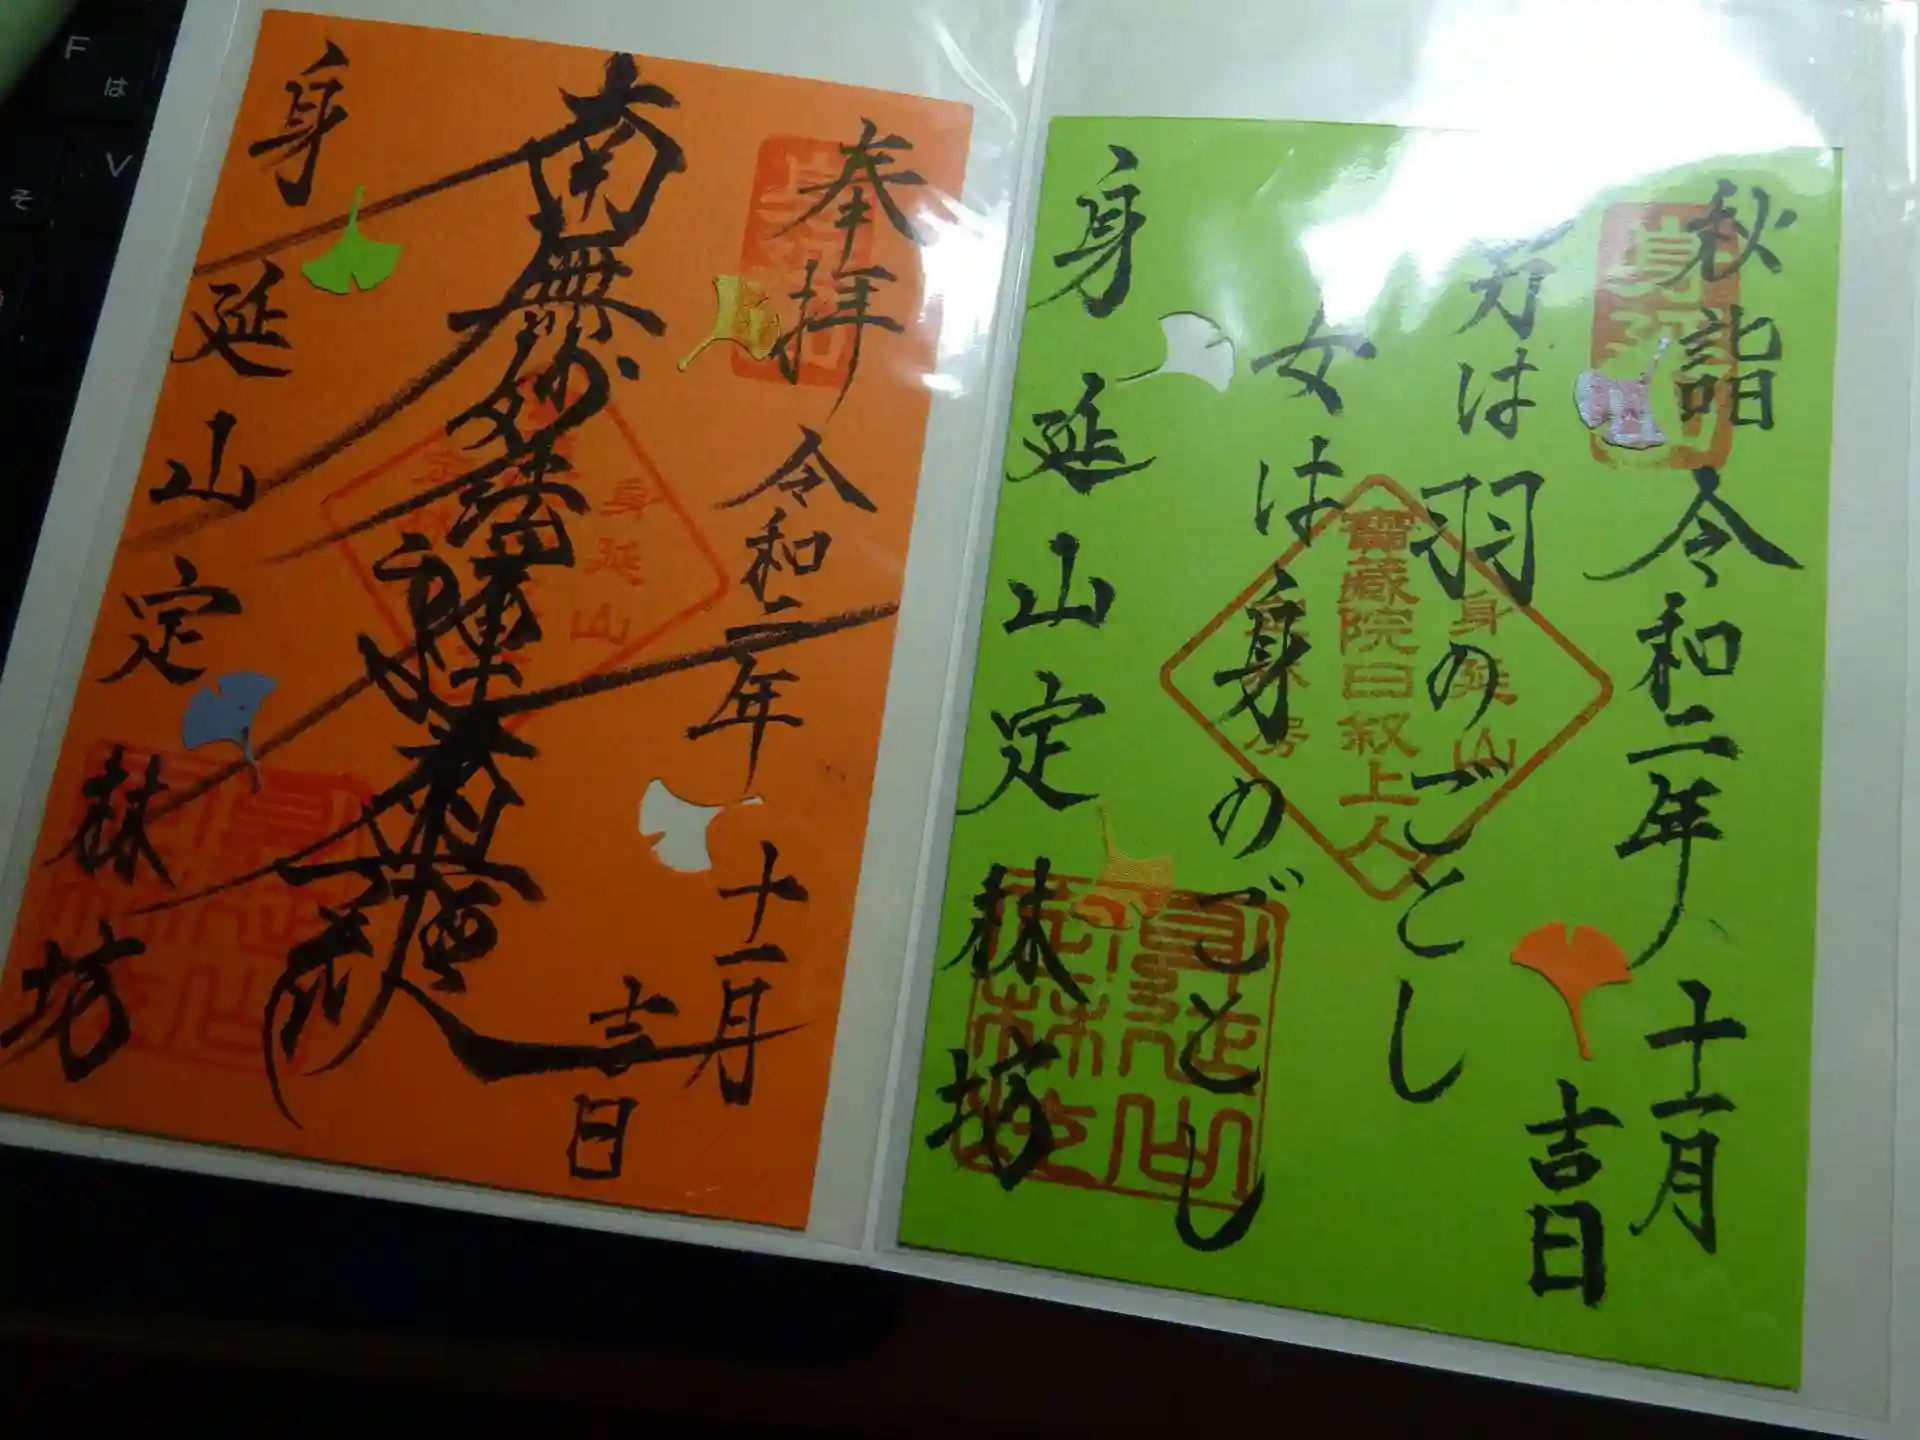 秋詣 令和二年十一月
吉日
男は羽のごとし
女は身のごとし
身延山定林坊
身延山
寶蔵院日叙上人
身延山定林坊
奉拝 令和二年十一月
吉日
南無妙法蓮華経
身延山定林坊
身延山
F
は
V
そ